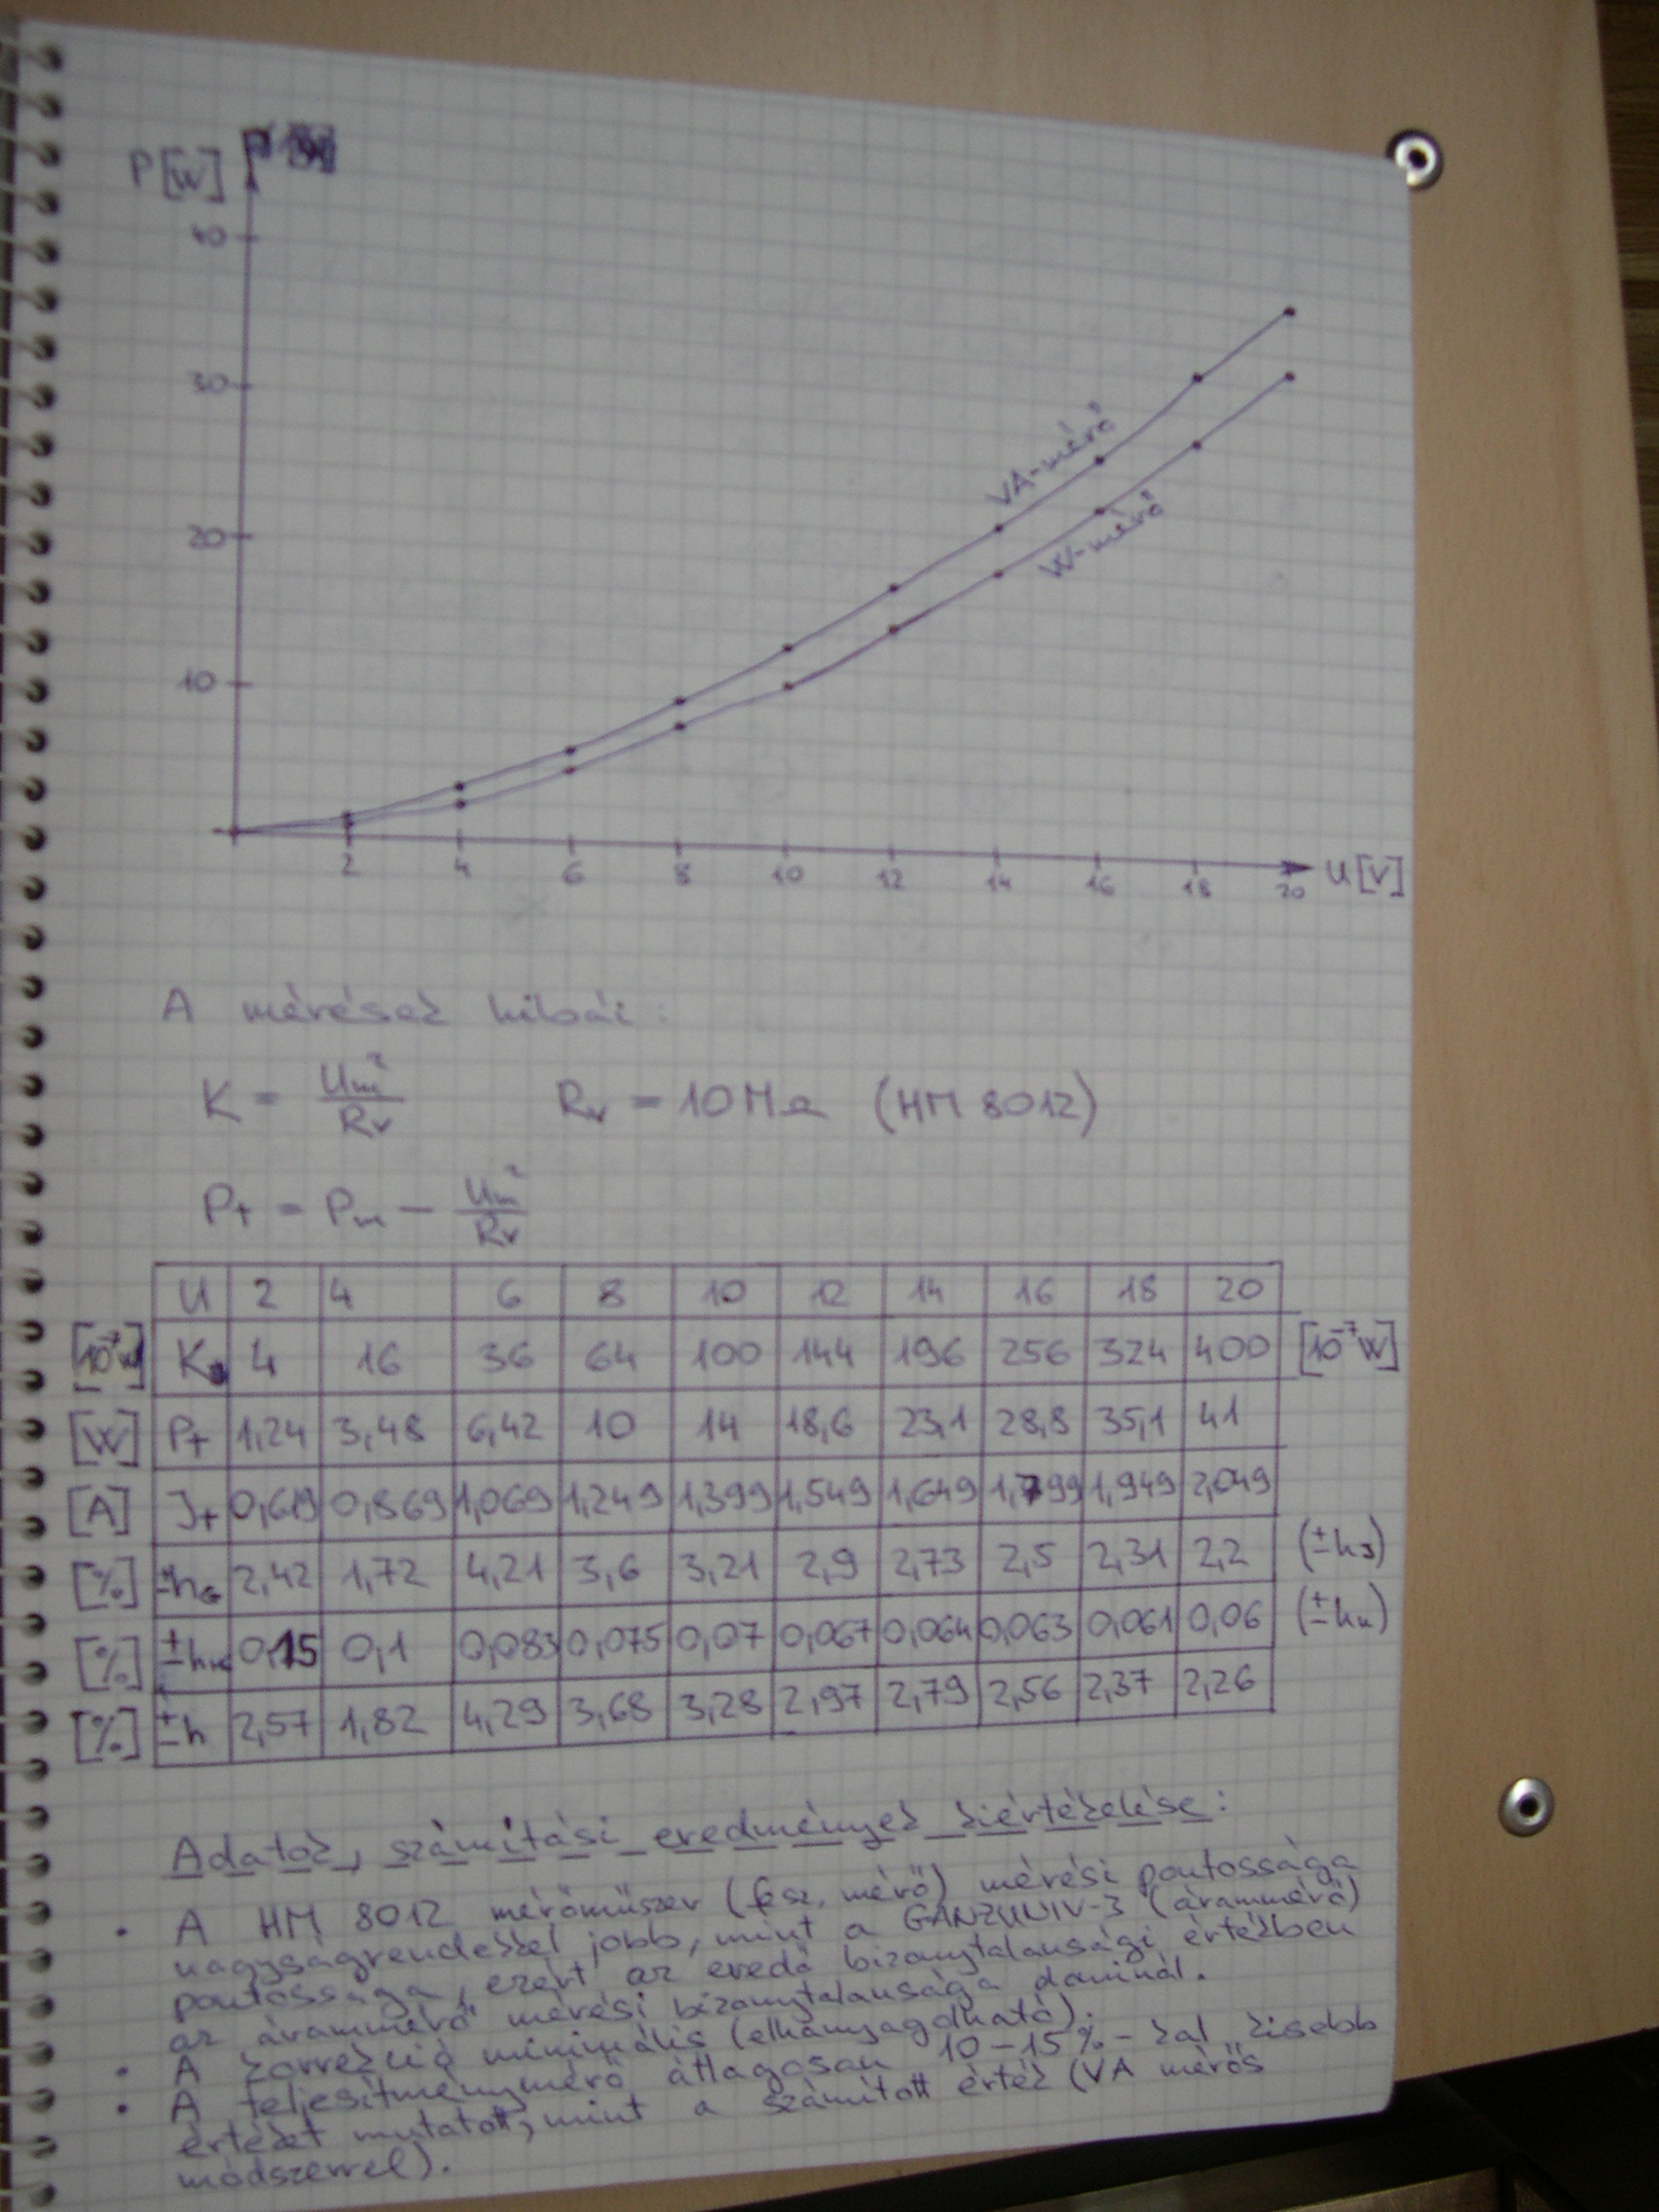 P[W]
40
30
20
10
VA-mérő
W-mérő
2 4 6 8 10 12 14 16 18 20 U[V]
A mérések hibái:
K = Um²/Rv Rv = 10MΩ (HM 8012)
P+ = Pm - Um²/Rv
U 2 4 6 8 10 12 14 16 18 20
[10⁻⁷W] K 4 16 36 64 100 144 196 256 324 400 [10⁻⁷W]
[W] P+ 1,24 3,48 6,42 10 14 18,6 23,1 28,8 35,1 41
[A] J+ 0,619 0,869 1,069 1,249 1,399 1,549 1,649 1,799 1,949 2,049
[%] ±hG 2,42 1,72 4,21 3,6 3,21 2,9 2,73 2,5 2,31 2,2 (±hJ)
[%] ±hH 0,15 0,1 0,083 0,075 0,07 0,067 0,064 0,063 0,061 0,06 (±hu)
[%] ±h 2,57 1,82 4,29 3,68 3,28 2,97 2,79 2,56 2,37 2,26
Adatok, számítási eredmények kiértékelése:
• A HM 8012 mérőműszer (fesz. mérő) mérési pontossága
nagyságrendekkel jobb, mint a GANZUNIV-3 (árammérő)
pontossága, ezért az eredő bizonytalansági értékben
az árammérő mérési bizonytalansága dominál.
• A korrekció minimális (elhanyagolható).
• A teljesítménymérő átlagosan 10-15%-kal kisebb
értéket mutatott, mint a számított érték (VA mérős
módszerrel).